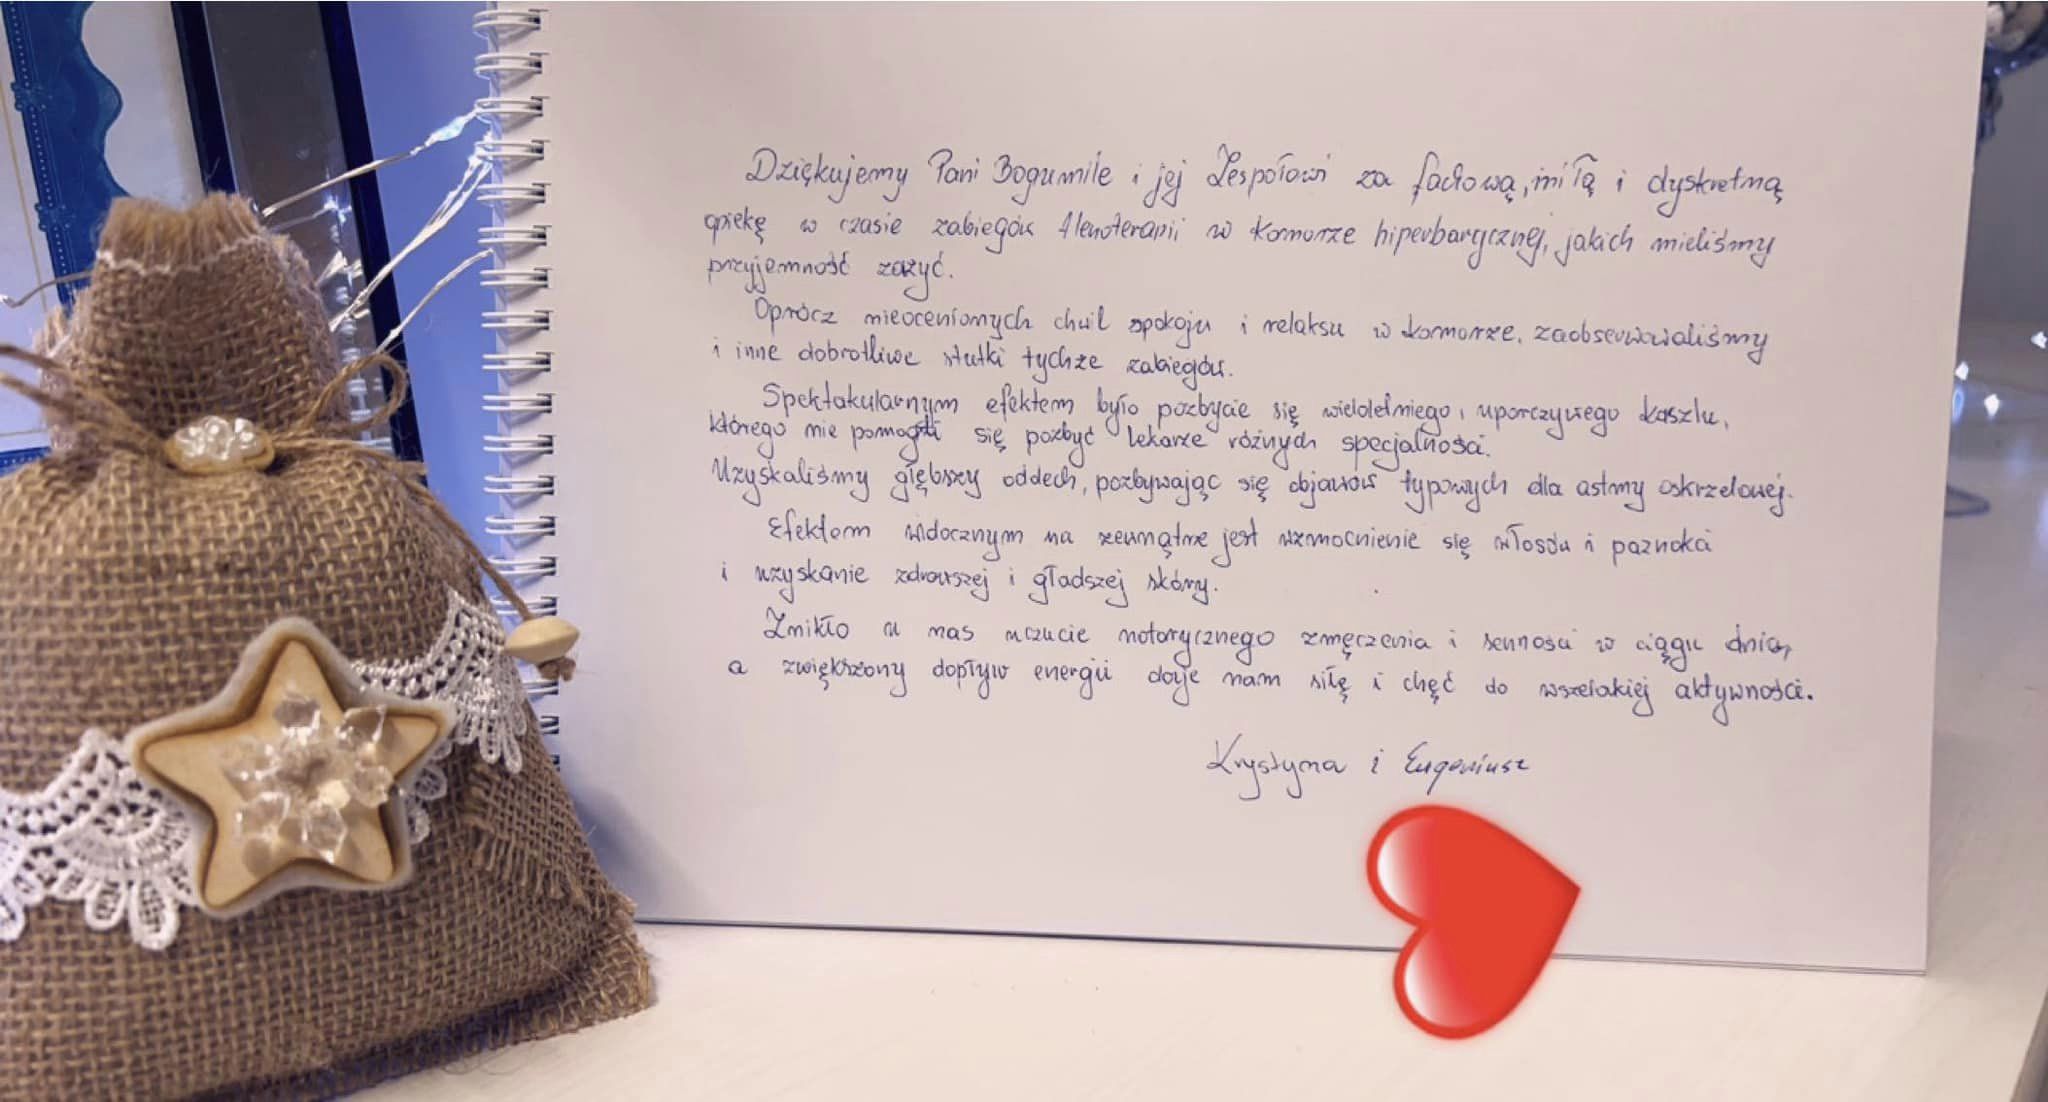 Dziękujemy Pani Bogumile i jej Zespołowi za fachową, miłą i dyskretną
opiekę w czasie zabiegów tlenoterapii w komorze hiperbarycznej, jakich mieliśmy
przyjemność zażyć.
Oprócz nieocenionych chwil spokoju i relaksu w komorze, zaobserwowaliśmy
i inne dobrotliwe skutki tychże zabiegów.
Spektakularnym efektem było pozbycie się wieloletniego, uporczywego kaszlu,
którego nie pomogli się pozbyć lekarze różnych specjalności.
Uzyskaliśmy głębszy oddech, pozbywając się objawów typowych dla astmy oskrzelowej.
Efektem widocznym na zewnątrz jest wzmocnienie się włosów i paznokci
i uzyskanie zdrowszej i gładszej skóry.
Znikło u nas uczucie notorycznego zmęczenia i senności w ciągu dnia,
a zwiększony dopływ energii daje nam siłę i chęć do wszelakiej aktywności.
Krystyna i Eugeniusz